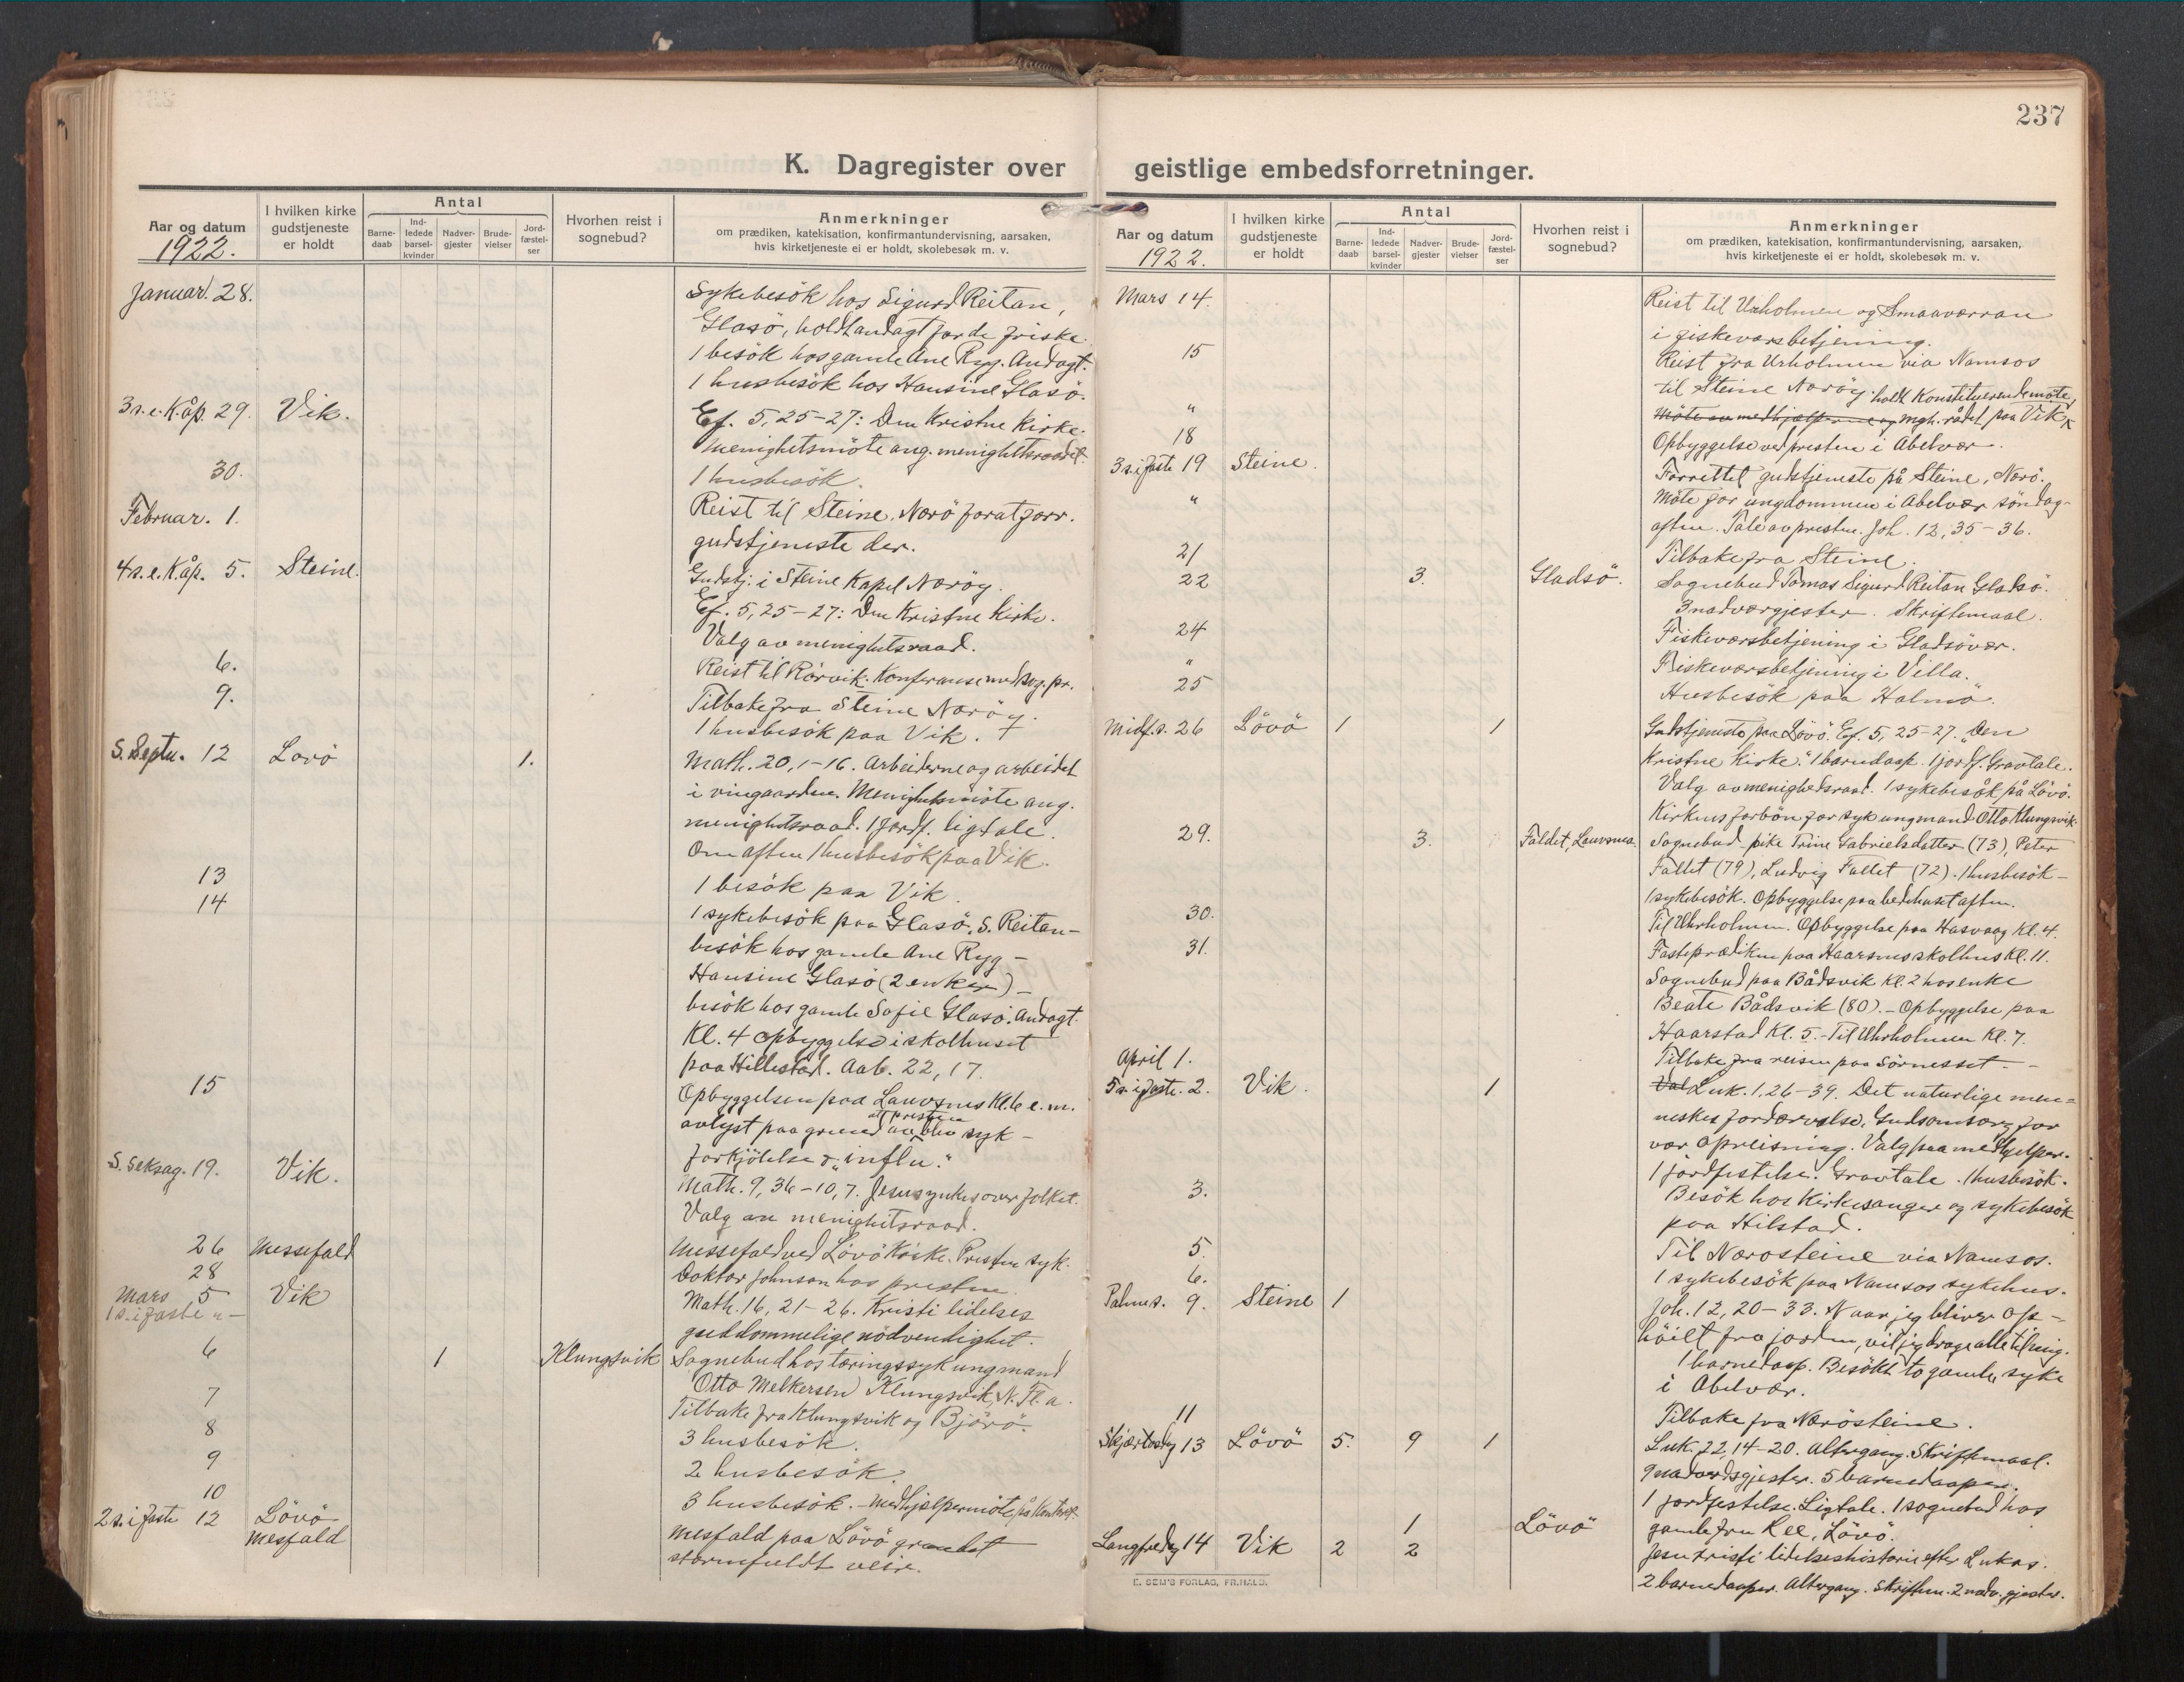 237
K. Dagregister over geistlige embedsforretninger.
Aar og datum
1922.
I hvilken kirke gudstjeneste er holdt
Antal
Barnedaab
Indledede barselkvinder
Nadvergjester
Brudevielser
Jordfæstelser
Hvorhen reist i sognebud?
Anmerkninger
om prædiken, katekisation, konfirmantundervisning, aarsaken,
hvis kirketjeneste ei er holdt, skolebesøk m. v.
Januar. 28. Sykebesök hos Sigurd Reitan,
Glasö, holdt andagt for de friske.
1 besök hos gamle Ane Ryg. Andagt.
1 husbesök hos Hansine Glasö.
3 s.e.K.åp. 29. Vik. Ef. 5, 25-27: Den Kristne Kirke.
Menighetsmöte ang. menighetsraadet.
30. 1 husbesök.
Februar. 1. Reist til Steine, Nærö for at forr.
gudstjeneste der.
4 s.e.K.åp. 5. Steine. Gudstj. i Steine Kapel Næröy.
Ef. 5, 25-27: Den Kristne Kirke.
Valg av menighetsraad.
6. Reist til Rörvik. Konferanse med sog.pr.
9. Tilbake fra Steine Næröy.
1 husbesök paa Vik.
S. Septu. 12 Lovö 1. Math. 20, 1-16. Arbeiderne og arbeidet
i vingaarden. Menighetsmöte ang.
menighetsraad. 1 jordf. ligtale.
Om aften 1 husbesök paa Vik.
13 1 besök paa Vik.
14 1 sykebesök paa Glasö. S. Reitan-
besök hos gamle Ane Ryg -
Hansine Glasö (2 enker) -
besök hos gamle Sofie Glasö. Andagt.
Kl. 4 opbyggelse i skolhuset
paa Hillestad. Aab. 22, 17.
15 Opbyggelsen paa Lauvsnes Kl. 6 e.m.
avlyst paa grund av at presten blev syk -
forkjölelse & "influ."
S. Seksag. 19. Vik. Math. 9, 36-10, 7. Jesus ynkes over folket.
Valg av menighetsraad.
26 Messefald Messefald ved Lövö Kirke. Presten syk.
28 Doktor Johnson hos presten.
Mars 5 Vik Math. 16, 21-26. Kristi lidelses
1 s. i faste guddommelige nödvendighet.
6 1 Klungsvik Sognebud hos tæringssyk ungmand
Otto Melkersen Klungsvik, N. Fl.a.
7 Tilbake fra Klungsvik og Björö.
8 3 husbesök.
9 2 husbesök.
10 3 husbesök. - Medhjelpermöte på Kontoret
2 s. i faste 12 Lövö Mesfald Mesfald paa Lövö grundet
stormfuldt veir.
Aar og datum
1922.
I hvilken kirke gudstjeneste er holdt
Antal
Barnedaab
Indledede barselkvinder
Nadvergjester
Brudevielser
Jordfæstelser
Hvorhen reist i sognebud?
Anmerkninger
om prædiken, katekisation, konfirmantundervisning, aarsaken,
hvis kirketjeneste ei er holdt, skolebesøk m. v.
Mars 14. Reist til Urholmen og Smaaværran
i fiskeværsbetjening.
15 Reist fra Urholmen via Namsos
til Steine Næröy. holdt Konstituerende möte
" Möte av medhjælperne og mgh. rådet paa Vik
18 Opbyggelse ved presten i Abelvær.
3 s. i faste 19 Steine. Forrettet gudstjeneste på Steine, Nærö.
" Möte for ungdommen i Abelvær söndag-
aften. Tale av presten. Joh. 12, 35-36.
21 Tilbake fra Steine.
22 3. Gladsö. Sognebud Tomas Sigurd Reitan Gladsö.
3 nadværgjester. Skriftemaal.
24 Fiskeværsbetjening i Gladsövær.
" Fiskeværsbetjening i Villa.
25 Husbesök paa Halmö.
Midf.s. 26 Lövö 1 1 Gudstjeneste paa Lövö. Ef. 5, 25-27. "Den
Kristne Kirke." 1 barnedaap. 1 jordf. Gravtale.
Valg av menighedsraad. 1 sykebesök på Lövö.
Kirkens forbön for syk ungmand Otto Klungsvik.
29. 3. Faldet, Lauvsnes. Sognebud pike Trine Gabrielsdatter (73), Peter
Fallet (79), Ludvig Fallet (72). 1 husbesök -
1 sykebesök. Opbyggelse paa bedehuset aften.
30. Til Uhrholmen. Opbyggelse paa Hasvaag Kl. 4.
31. Fasteprædiken paa Haarsnes skolhus Kl. 11.
Sognebud paa Bådsvik Kl. 2 hos enke
Beate Bådsvik (80). - Opbyggelse paa
Haarstad Kl. 5. - Til Uhrholmen Kl. 7.
April 1. Tilbake fra reisen paa Sörnesset. -
5 s. i faste. 2. Vik. 1 Val Luk. 1, 26-39. Det naturlige men=
neskes fordærvelse, Guds omsorg for
vor opreisning. Valg paa medhjelper.
1 jordfestelse. Gravtale. 1 husbesök.
3. Besök hos Kirkesanger og sykebesök
paa Hilstad.
5. Til Næröysteine via Namsos.
6. 1 sykebesök paa Namsos sykehus.
Palmes. 9. Steine 1 Joh. 12, 20-33. Naar jeg bliver op-
höiet fra jorden, vil jeg drage alle til mig.
1 barnedaap. Besökt to gamle, syke
i Abelvær.
11 Tilbake fra Nærösteine.
Skjærtorsdg 13 Lövö 5. 9 1 Luk. 22, 14-20. Altergang. Skriftemaal.
9 nadverdsgjester. 5 barnedaaper.
1 jordfestelse. Ligtale. 1 sognebud hos
1 Lövö gamle fru Lee, Lövö.
Langfredg 14 Vik 2 2 Jesu Kristi lidelseshistorie efter Lukas.
2 barnedaaper. Altergang. Skriftem. 2 nadv. gjester.
E. SEM'S FORLAG, FR.HALD.